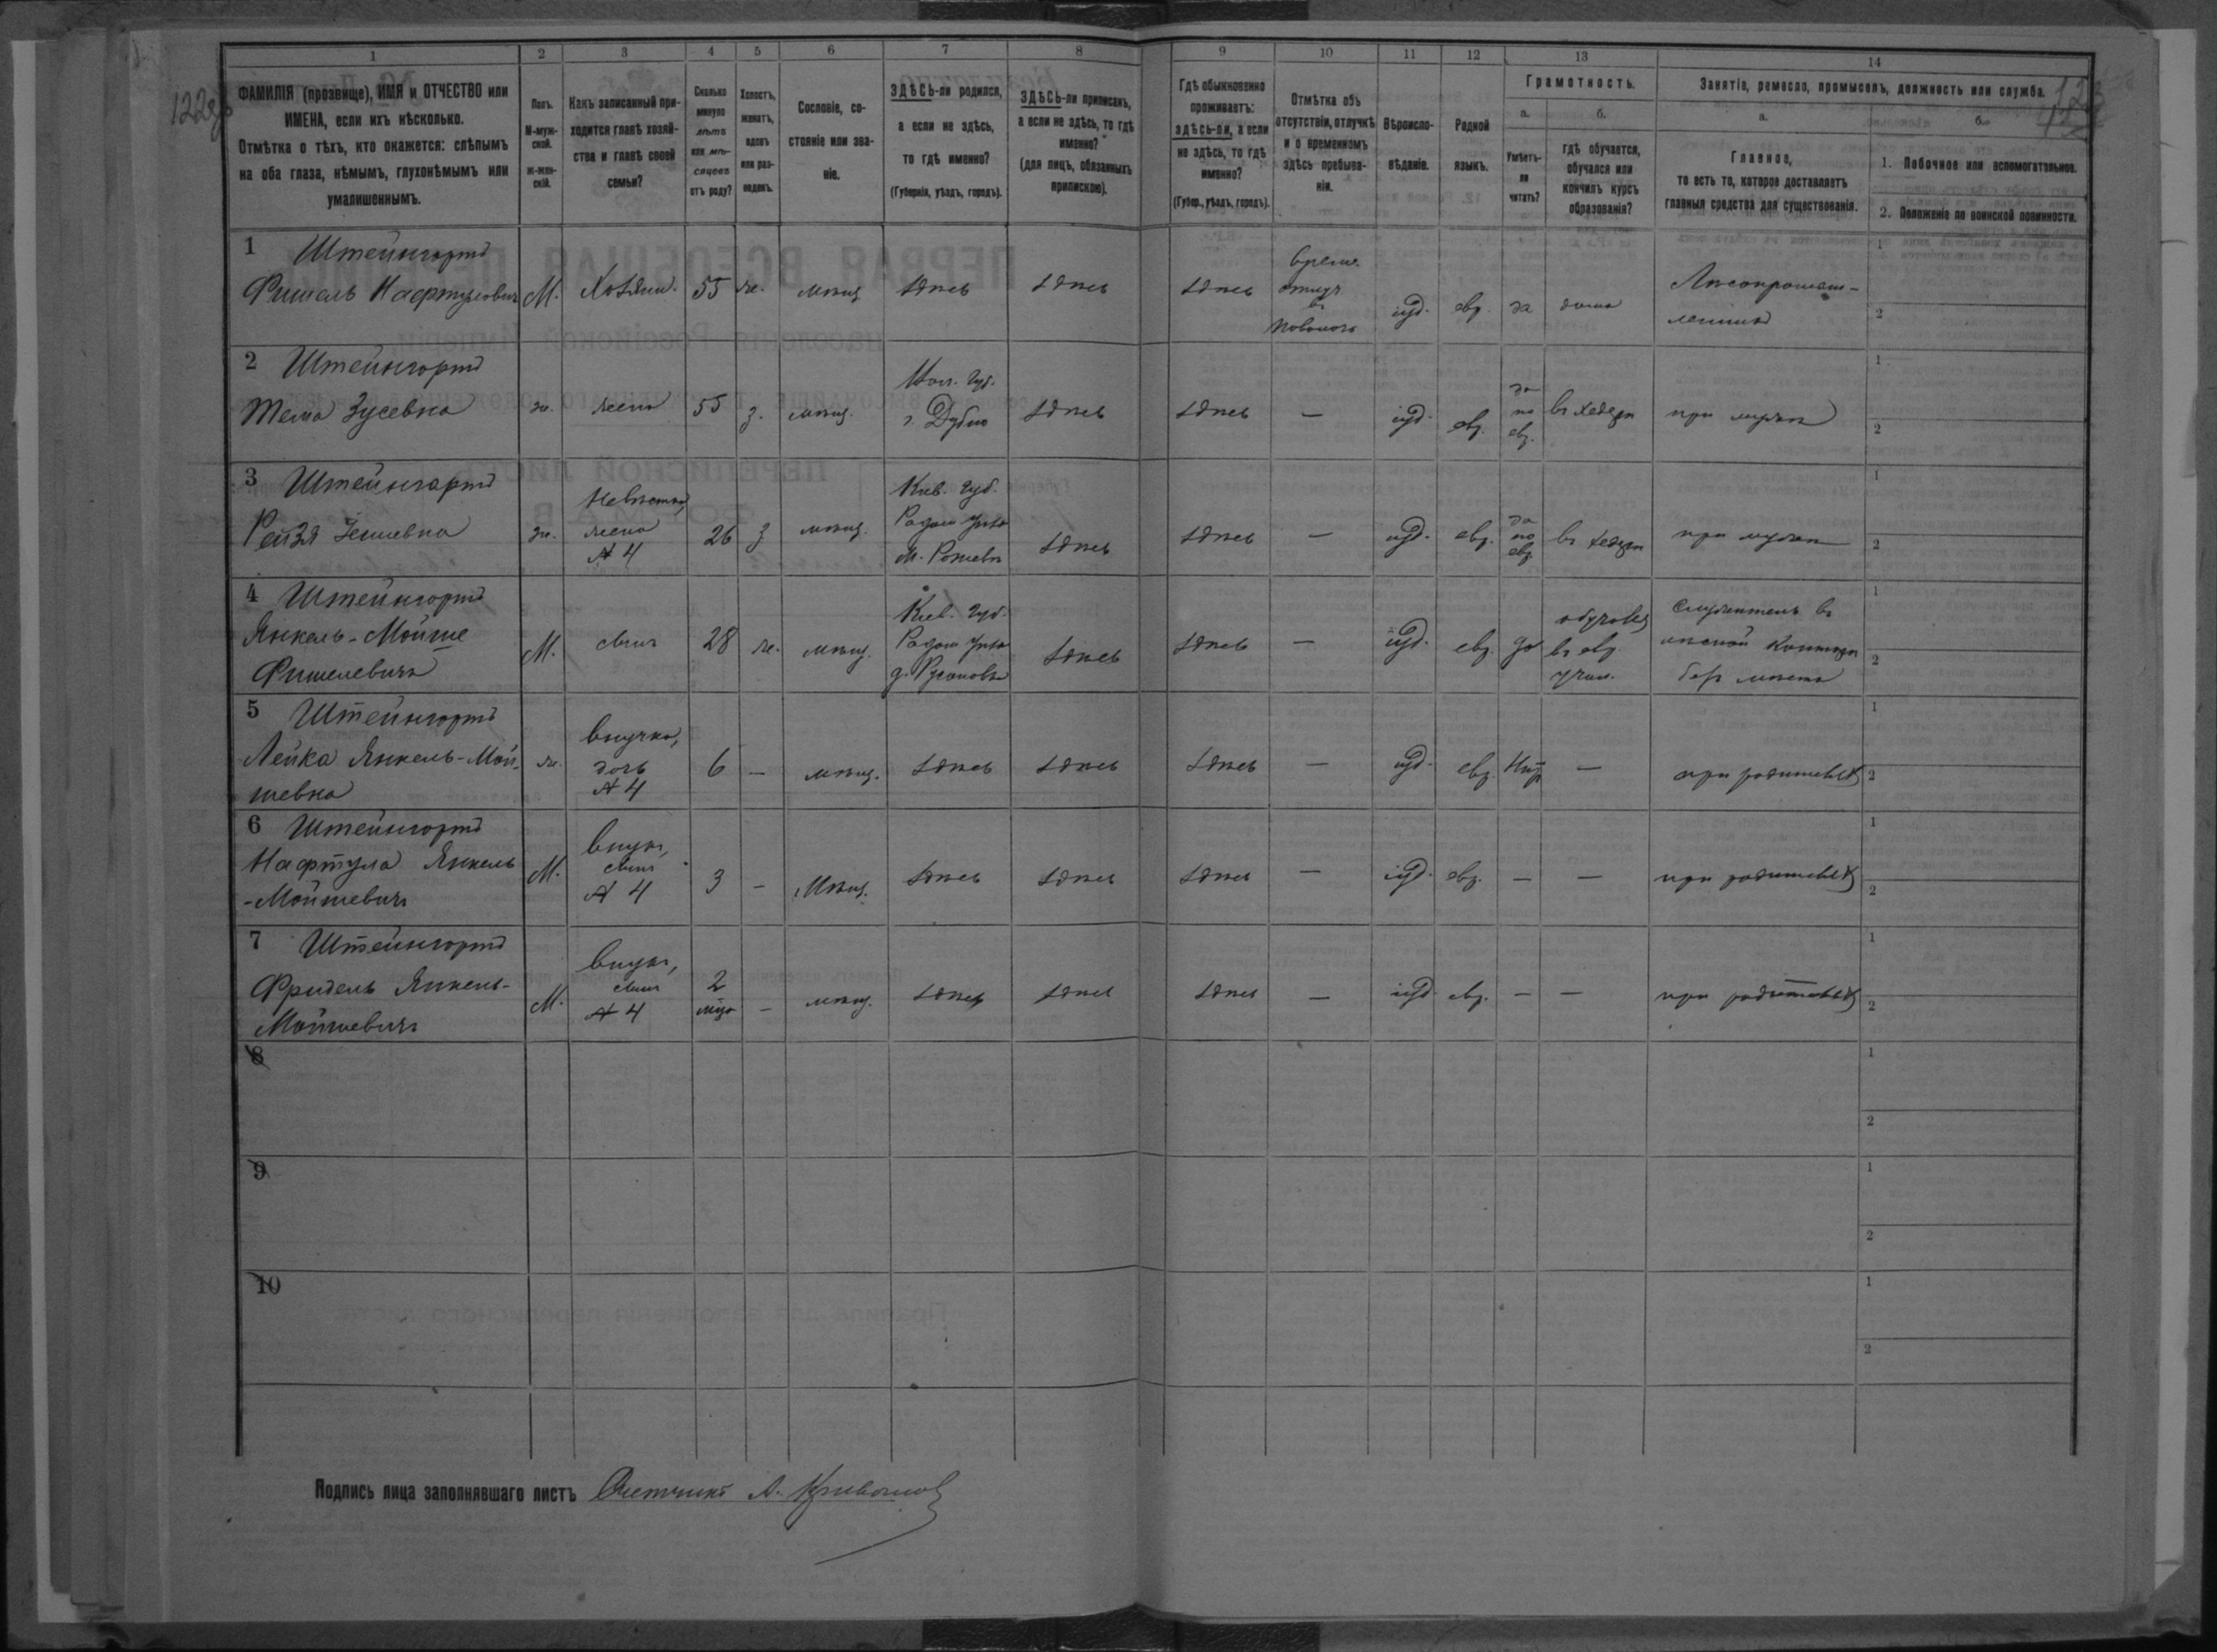 1 2 3 4 5 6 7 8 9 10 11 12 13 14
ФАМИЛІЯ (прозвище), ИМЯ и ОТЧЕСТВО или
ИМЕНА, если ихъ нѣсколько.
Отмѣтка о тѣхъ, кто окажется: слѣпымъ
на оба глаза, нѣмымъ, глухонѣмымъ или
умалишеннымъ.
Полъ.
М-муж-
ской.
ж-жен-
скій.
Какъ записанный при-
ходится главѣ хозяй-
ства и главѣ своей
семьи?
Сколько
минуло
лѣтъ
или мѣ-
сяцевъ
отъ роду?
Холостъ,
женатъ,
вдовъ
или раз-
веденъ.
Сословіе, со-
стояніе или зва-
ніе.
ЗДѢСЬ-ли родился,
а если не здѣсь,
то гдѣ именно?
(Губернія, уѣздъ, городъ).
ЗДѢСЬ-ли приписанъ,
а если не здѣсь, то гдѣ
именно?
(для лицъ, обязанныхъ
припискою).
Гдѣ обыкновенно
проживаетъ:
здѣсь-ли, а если
не здѣсь, то гдѣ
именно?
(Губер., уѣздъ, городъ).
Отмѣтка объ
отсутствіи, отлучкѣ
и о временномъ
здѣсь пребыва-
ніи.
Вѣроиспо-
вѣданіе.
Родной
языкъ.
Грамотность.
а.
Умѣетъ-
ли
читать?
б.
гдѣ обучается,
обучался или
кончилъ курсъ
образованія?
Занятіе, ремесло, промыселъ, должность или служба.
а.
Главное,
то есть то, которое доставляетъ
главныя средства для существованія.
б.
1. Побочное или вспомогательное.
2. Положеніе по воинской повинности.
1 Штейнгортъ
Фишель Нафтуловичъ М. Хозяин. 55 же. мѣщ здѣсь здѣсь здѣсь
времен. отлуч. въ
іуд. евр. да дома
Лѣсопромыш-
ленникъ
1
2
2 Штейнгортъ
Тема Зусевна ж. жена 55 з. мѣщ.
Вол. Губ.
г. Дубно
здѣсь здѣсь — іуд. евр.
да
по
евр.
въ хедерѣ при мужѣ
1
2
3 Штейнгартъ
Рейзя ж.
Невѣстка,
жена
№ 4
26 з мѣщ.
Кіев. губ.
Радом уѣзд
м.
здѣсь здѣсь — іуд. евр.
да
по
евр.
въ хедерѣ при мужѣ
1
2
4 Штейнгортъ
Янкель-Мойше
Фишелевичъ
М. сынъ 28 же. мѣщ.
Кіев. губ.
Радом уѣзд
д.
здѣсь здѣсь — іуд. евр. да
въ евр.
учил.
Служитель въ
лѣсной Конторѣ
1
2
5 Штейнгортъ
Лейка Янкель-Мой-
шевна
ж.
внучка,
дочь
№ 4
6 — мѣщ. здѣсь здѣсь здѣсь — іуд. евр. Нѣт — при родителях
1
2
6 Штейнгортъ
Нафтула Янкель
-Мойшевичъ
М.
внукъ,
сынъ
№ 4
3 — Мѣщ. здѣсь здѣсь здѣсь — іуд. евр. — — при родителях
1
2
7 Штейнгортъ
Фридель Янкель-
Мойшевичъ
М.
внукъ,
сынъ
№ 4
2
— мѣщ. здѣсь здѣсь здѣсь — іуд. евр. — — при родителях
1
2
8
1
2
9
1
2
10
1
2
Подпись лица заполнявшаго листъ Счетчикъ А.